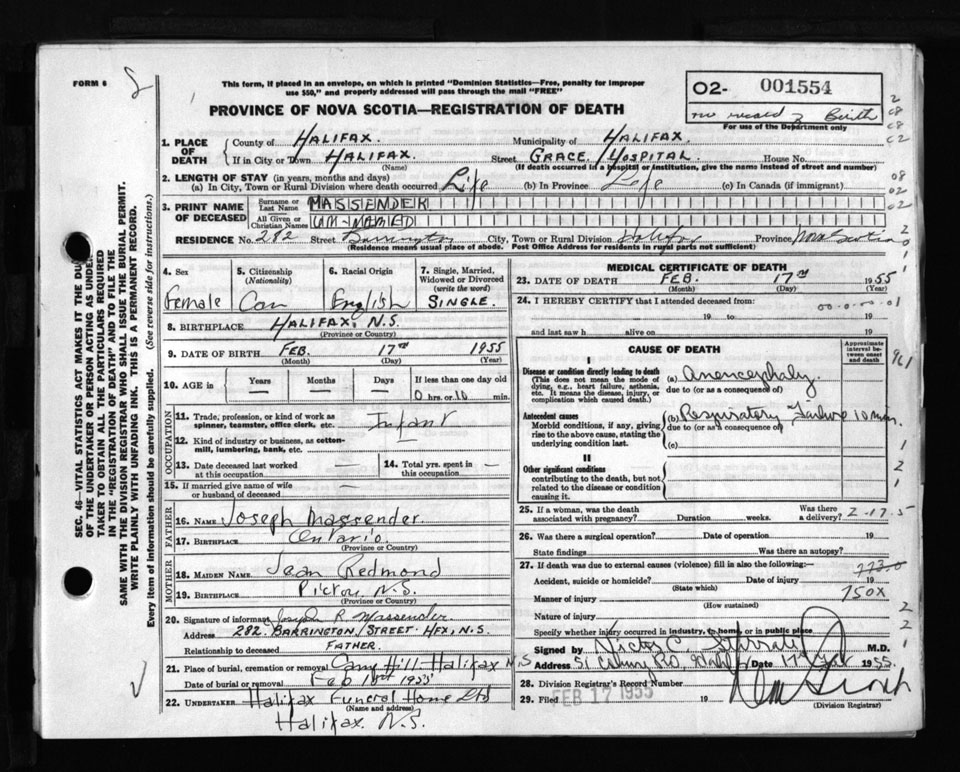 FORM 6
This form, if placed in an envelope, on which is printed "Dominion Statistics—Free, penalty for improper
use $50," and properly addressed will pass through the mail "FREE"
PROVINCE OF NOVA SCOTIA—REGISTRATION OF DEATH
O2- 001554
no record of Birth
For use of the Department only
1. PLACE OF DEATH
County of HALIFAX. Municipality of HALIFAX.
If in City or Town HALIFAX. Street GRACE HOSPITAL House No.
(Name) (If death occurred in a hospital or institution, give the name instead of street and number)
2. LENGTH OF STAY (in years, months and days)
(a) In City, Town or Rural Division where death occurred Life (b) In Province Life (c) In Canada (if immigrant)
3. PRINT NAME OF DECEASED
Surname or Last Name MASSENDER
All Given or Christian Names UN-NAMED
RESIDENCE No. 282 Street Barrington City, Town or Rural Division Halifax Province Nova Scotia
(Residence means usual place of abode. Post Office Address for residents in rural parts not sufficient)
4. Sex Female
5. Citizenship (Nationality) Can
6. Racial Origin English
7. Single, Married, Widowed or Divorced (write the word) SINGLE.
8. BIRTHPLACE HALIFAX, N.S.
(Province or Country)
9. DATE OF BIRTH FEB. 17th 1955
(Month) (Day) (Year)
10. AGE in Years Months Days If less than one day old
0 hrs. or 10 min.
OCCUPATION
11. Trade, profession, or kind of work as
spinner, teamster, office clerk, etc. Infant
12. Kind of industry or business, as cotton-
mill, lumbering, bank, etc.
13. Date deceased last worked
at this occupation —
14. Total yrs. spent in
this occupation —
15. If married give name of wife
or husband of deceased —
FATHER
16. NAME Joseph Massender.
17. BIRTHPLACE Ontario
(Province or Country)
MOTHER
18. MAIDEN NAME Jean Redmond
19. BIRTHPLACE Pictou N.S.
(Province or Country)
20. Signature of informant Joseph R. Massender
Address 282 BARRINGTON STREET. HFX, N.S.
Relationship to deceased FATHER.
21. Place of burial, cremation or removal Camp Hill-Halifax N.S
Date of burial or removal Feb 1955
22. UNDERTAKER Halifax Funeral Home Ltd
(Name and address)
Halifax. N.S.
MEDICAL CERTIFICATE OF DEATH
23. DATE OF DEATH FEB. 17th 1955
(Month) (Day) (Year)
24. I HEREBY CERTIFY that I attended deceased from:
19 to 19
and last saw h alive on 19
CAUSE OF DEATH
Approximate interval between onset and death
I
Disease or condition directly leading to death
(This does not mean the mode of
dying, e.g., heart failure, asthenia,
etc. It means the disease, injury, or
complication which caused death.)
(a) Anencephaly
due to (or as a consequence of)
Antecedent causes
Morbid conditions, if any, giving
rise to the above cause, stating the
underlying condition last.
(b) Respiratory Failure 10 min.
due to (or as a consequence of)
(c)
II
Other significant conditions
contributing to the death, but not
related to the disease or condition
causing it.
25. If a woman, was the death
associated with pregnancy? Duration weeks. Was there
a delivery? 2-17-5
26. Was there a surgical operation? Date of operation 19
State findings Was there an autopsy?
27. If death was due to external causes (violence) fill in also the following: 7730
Accident, suicide or homicide? Date of injury 19
(State which)
Manner of injury 750X
(How sustained)
Nature of injury
Specify whether injury occurred in industry, in home, or in public place
Signed by Victor C. M.D.
Address 51 Date 17 Feb 1955.
28. Division Registrar's Record Number
29. Filed FEB 17 1955 19
(Division Registrar)
SEC. 46—VITAL STATISTICS ACT MAKES IT THE DU
OF THE UNDERTAKER OR PERSON ACTING AS UNDER-
TAKER TO OBTAIN ALL THE PARTICULARS REQUIRED
IN THE "REGISTRATION OF DEATH" AND TO FILE THE
SAME WITH THE DIVISION REGISTRAR WHO SHALL ISSUE THE BURIAL PERMIT.
WRITE PLAINLY WITH UNFADING INK. THIS IS A PERMANENT RECORD.
Every item of information should be carefully supplied. (See reverse side for instructions.)